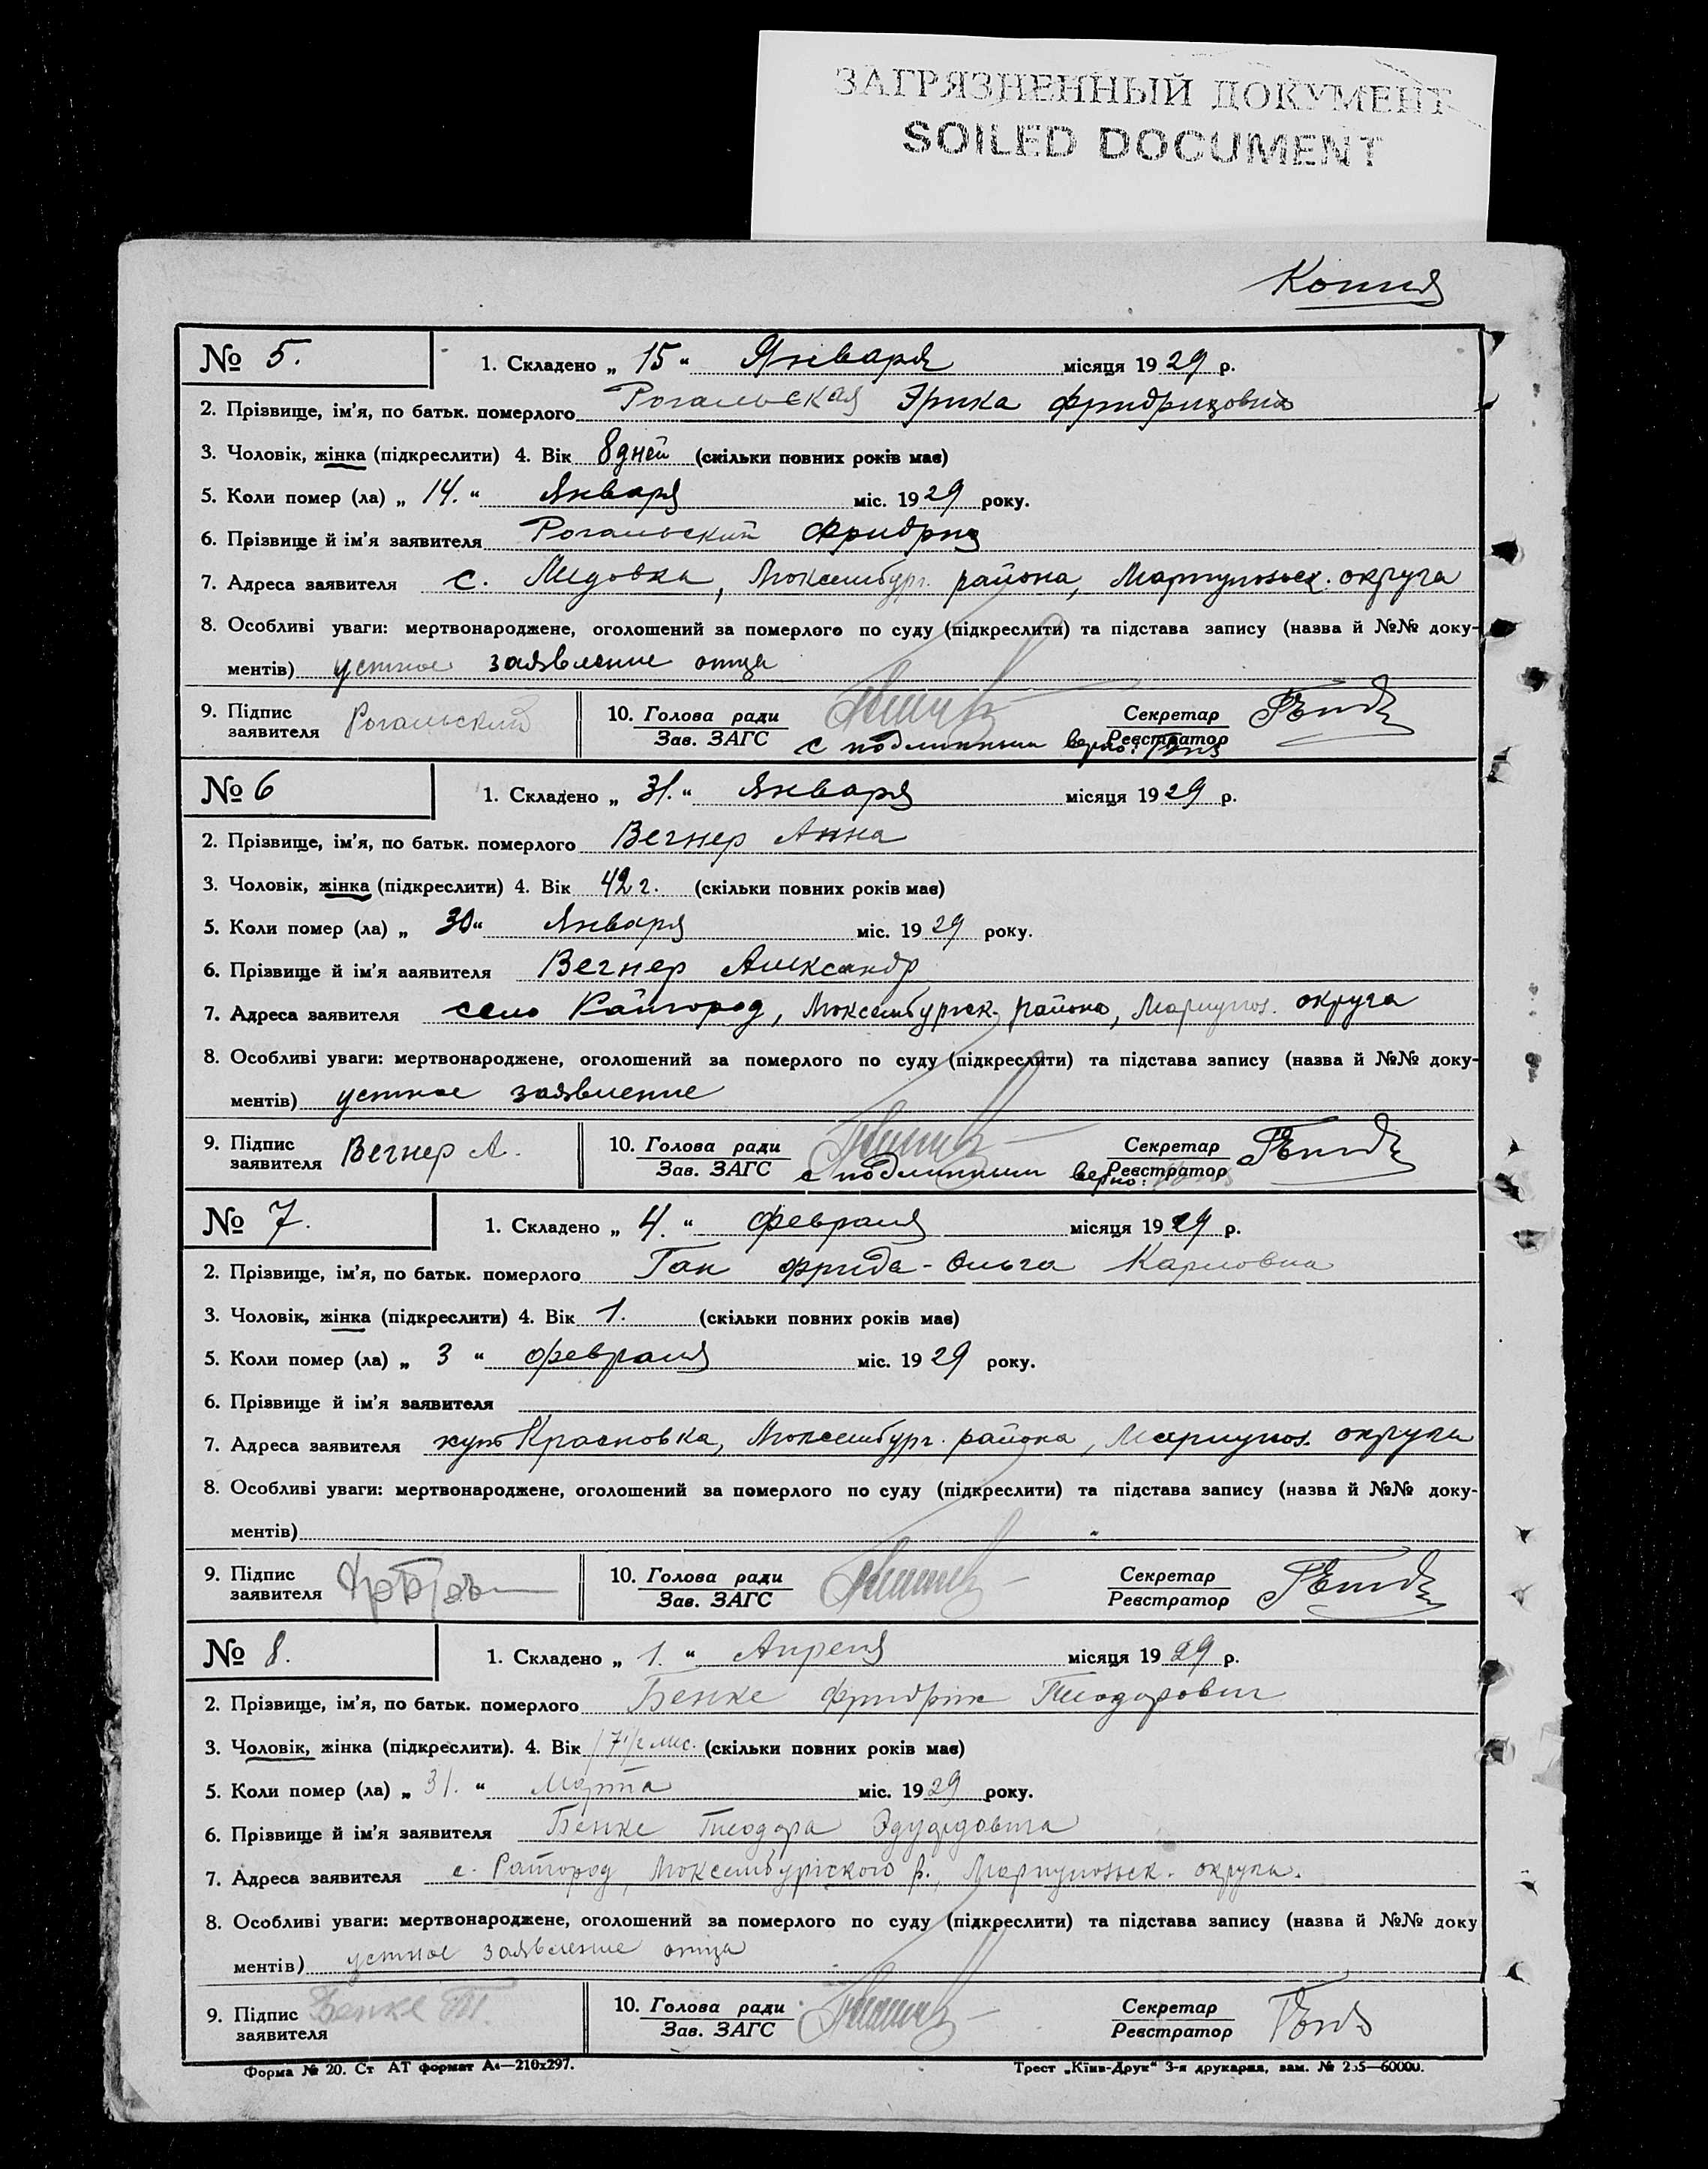 ЗАГРЯЗНЕННЫЙ ДОКУМЕНТ
SOILED DOCUMENT
Копия
№ 5. 1. Складено „ 15 “ Января місяця 1929 р.
2. Прізвище, ім’я, по батьк. померлого Рогальская Эрика Фридриховна
3. Чоловік, жінка (підкреслити) 4. Вік 8 дней (скільки повних років має)
5. Коли помер (ла) „ 14. “ Января міс. 1929 року.
6. Прізвище й ім’я заявителя Рогальский Фридрих
7. Адреса заявителя с. Медовка, Люксембург. района, Мариупольск. округа
8. Особливі уваги: мертвонароджене, оголошений за померлого по суду (підкреслити) та підстава запису (назва й №№ доку-
ментів) устное заявление отца
9. Підпис заявителя Рогальский 10. Голова ради Зав. ЗАГС Секретар Реєстратор
с подлинным верно:
№ 6 1. Складено „ 31. “ Января місяця 1929 р.
2. Прізвище, ім’я, по батьк. померлого Вегнер Анна
3. Чоловік, жінка (підкреслити) 4. Вік 42 г. (скільки повних років має)
5. Коли помер (ла) „ 30 “ Января міс. 1929 року.
6. Прізвище й ім’я заявителя Вегнер Александр
7. Адреса заявителя село Райгород, Люксембургск. района, Мариупол. округа
8. Особливі уваги: мертвонароджене, оголошений за померлого по суду (підкреслити) та підстава запису (назва й №№ доку-
ментів) устное заявление
9. Підпис заявителя Вегнер А. 10. Голова ради Зав. ЗАГС Секретар Реєстратор
с подлинным верно:
№ 7. 1. Складено „ 4. “ Февраля місяця 1929 р.
2. Прізвище, ім’я, по батьк. померлого Ган Фрида-Ольга Карловна
3. Чоловік, жінка (підкреслити) 4. Вік 1. (скільки повних років має)
5. Коли помер (ла) „ 3 “ Февраля міс. 1929 року.
6. Прізвище й ім’я заявителя
7. Адреса заявителя Красновка, Люксембург. района, Мариупол. округа
8. Особливі уваги: мертвонароджене, оголошений за померлого по суду (підкреслити) та підстава запису (назва й №№ доку-
ментів)
9. Підпис заявителя 10. Голова ради Зав. ЗАГС Секретар Реєстратор
№ 8. 1. Складено „ 1. “ Апреля місяця 1929 р.
2. Прізвище, ім’я, по батьк. померлого Бенке Фридрих Теодорович
3. Чоловік, жінка (підкреслити). 4. Вік 7 1/2 мес. (скільки повних років має)
5. Коли помер (ла) „ 31. “ Марта міс. 1929 року.
6. Прізвище й ім’я заявителя Бенке Теодора Эдуардовича
7. Адреса заявителя с. Райгород, Люксембургского р., Мариупольск. округа.
8. Особливі уваги: мертвонароджене, оголошений за померлого по суду (підкреслити) та підстава запису (назва й №№ доку
ментів) устное заявление отца
9. Підпис заявителя Бенке Т. 10. Голова ради Зав. ЗАГС Секретар Реєстратор
Форма № 20. Ст АТ формат А4—210х297. Трест „Київ-Друк“ 3-я друкарня, зам. № 255—60000.